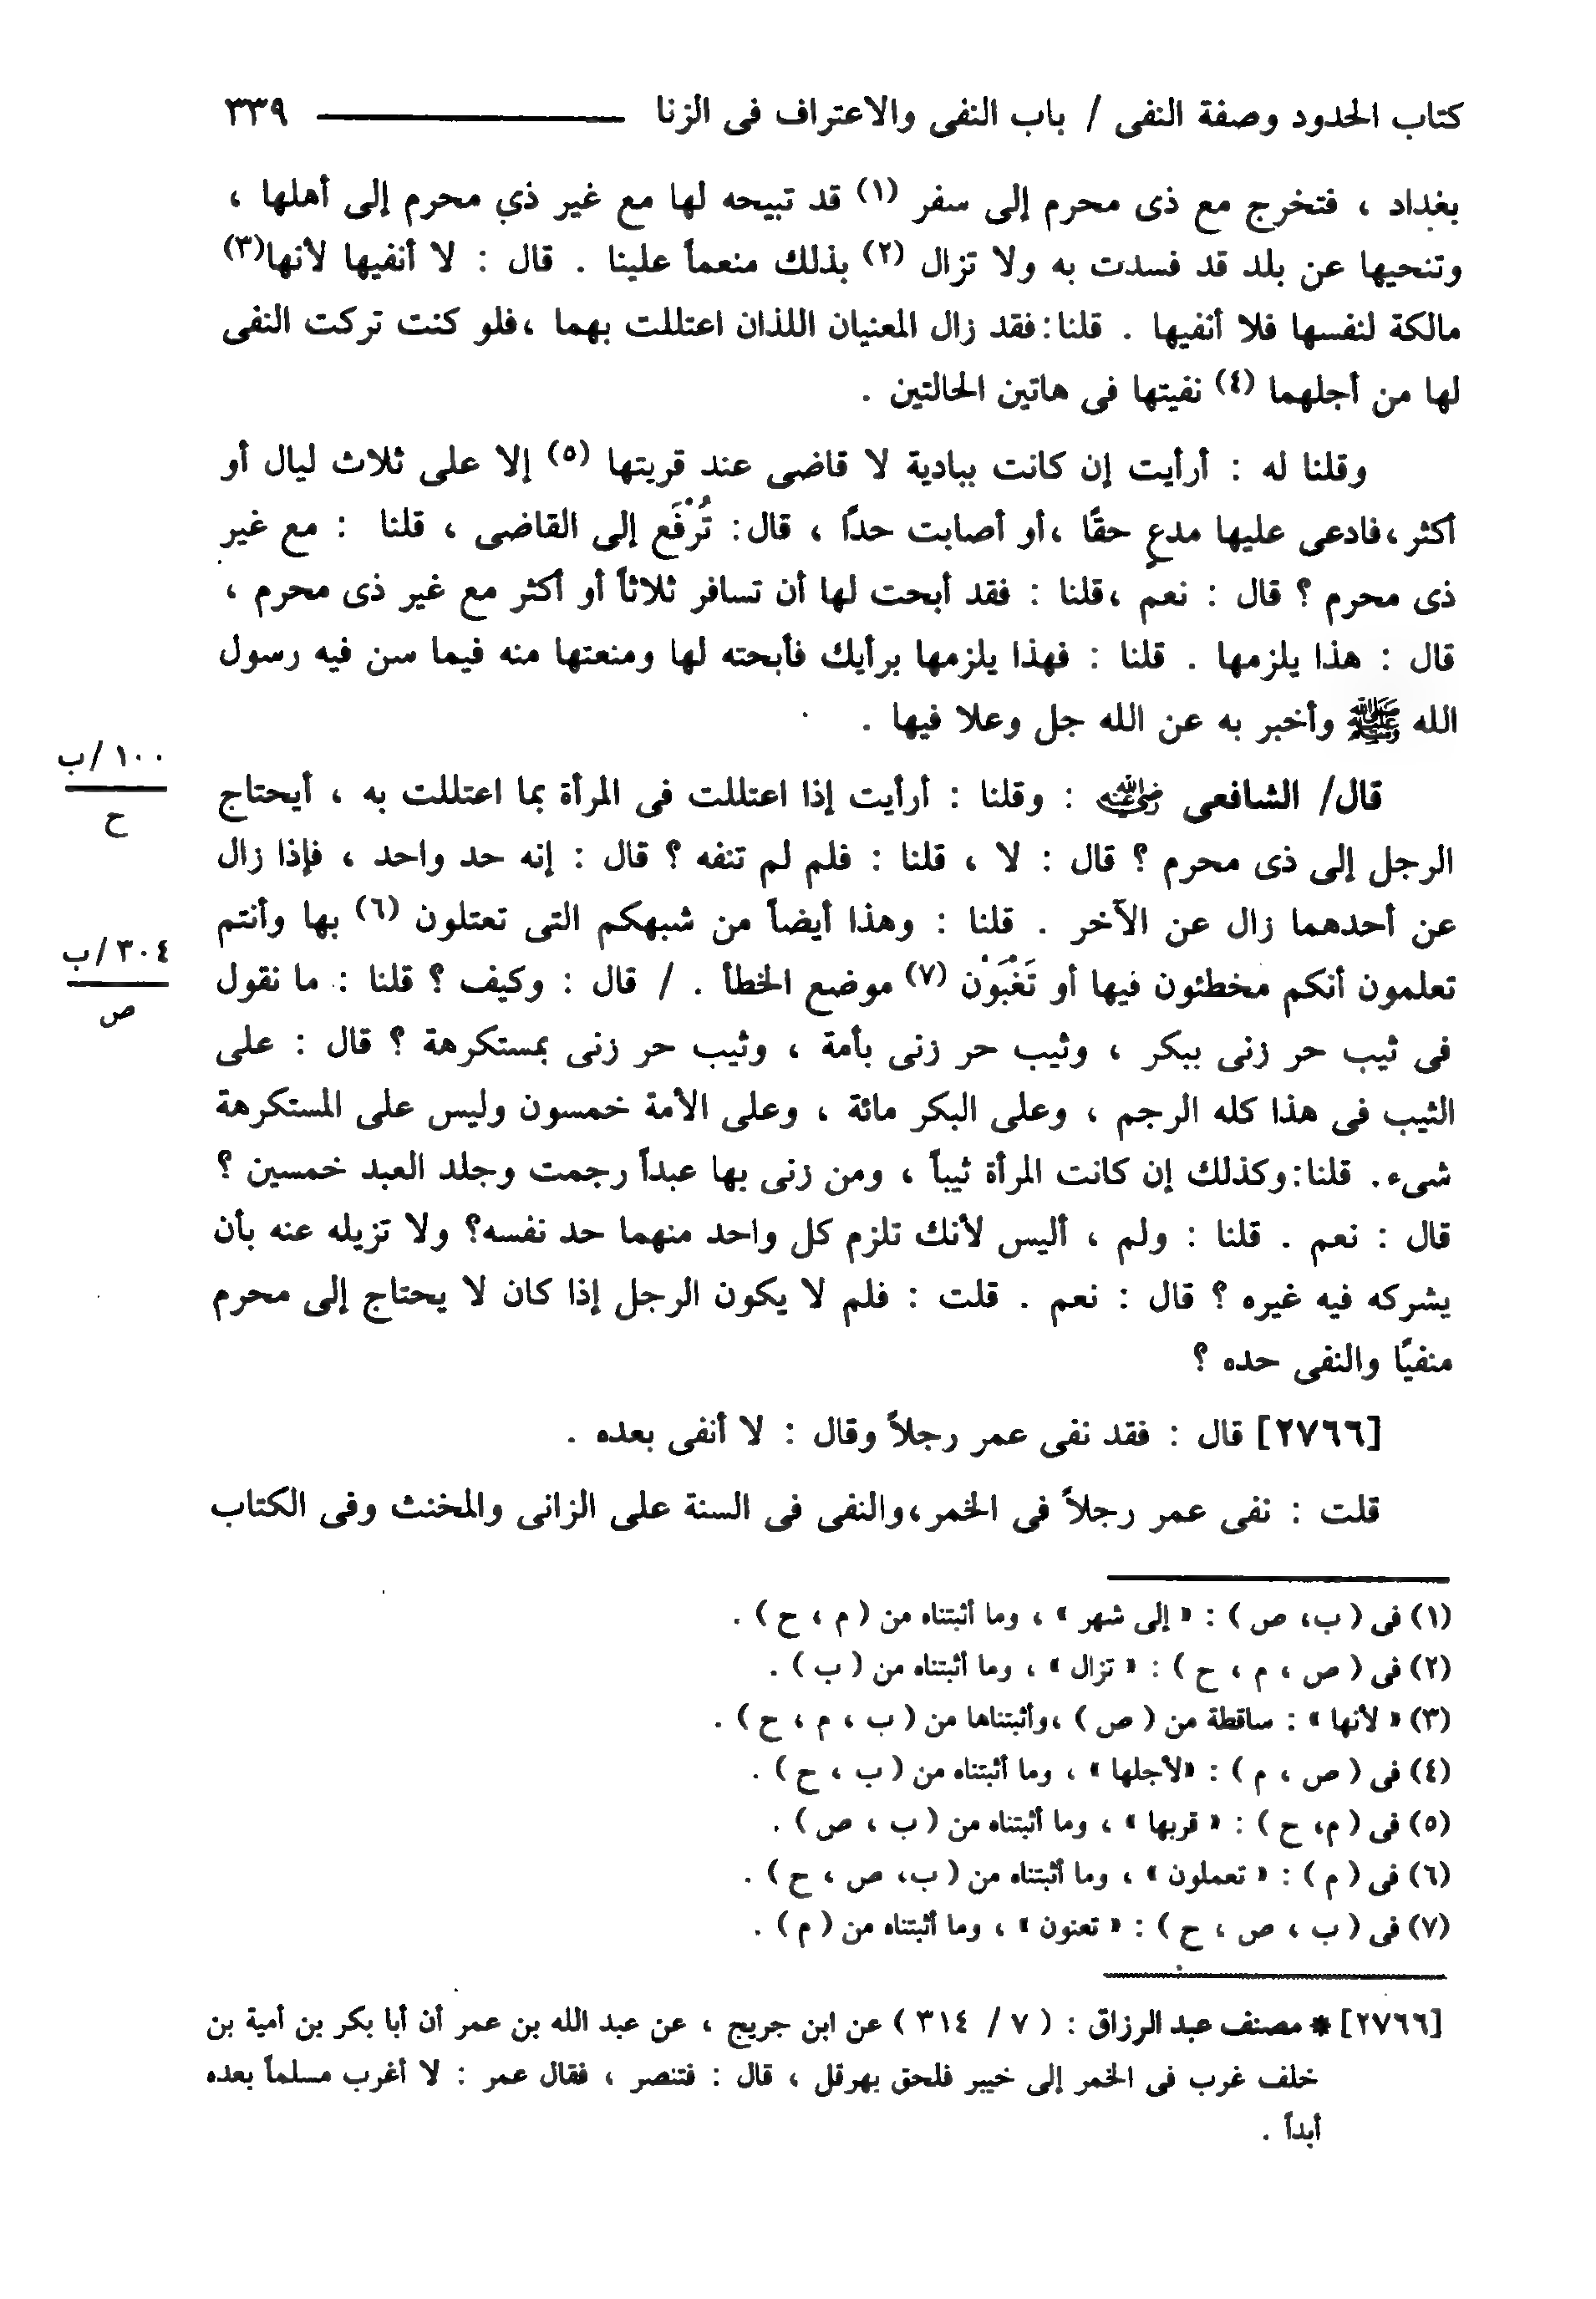 كتاب الحدود وصفة النفى / باب النفى والاعتراف فى الزنا ٣٣٩
بغداد ، فتخرج مع ذى محرم إلى سفر (١) قد تبيحه لها مع غير ذي محرم إلى أهلها ،
وتنحيها عن بلد قد فسدت به ولا تزال (٢) بذلك منعماً علينا . قال : لا أنفيها لأنها(٣)
مالكة لنفسها فلا أنفيها . قلنا:فقد زال المعنيان اللذان اعتللت بهما ،فلو كنت تركت النفى
لها من أجلهما (٤) نفيتها فى هاتين الحالتين .
وقلنا له : أرأيت إن كانت ببادية لا قاضى عند قريتها (٥) إلا على ثلاث ليال أو
أكثر،فادعى عليها مدعٍ حقًا ،أو أصابت حدًا ، قال: تُرْفَع إلى القاضى ، قلنا : مع غير
ذى محرم ؟ قال : نعم ،قلنا : فقد أبحت لها أن تسافر ثلاثاً أو أكثر مع غير ذى محرم ،
قال : هذا يلزمها . قلنا : فهذا يلزمها برأيك فأبحته لها ومنعتها منه فيما سن فيه رسول
الله ﷺ وأخبر به عن الله جل وعلا فيها .
١٠٠ /ب
ح
قال/ الشافعى رضي الله عنه : وقلنا : أرأيت إذا اعتللت فى المرأة بما اعتللت به ، أيحتاج
الرجل إلى ذى محرم ؟ قال : لا ، قلنا : فلم لم تنفه ؟ قال : إنه حد واحد ، فإذا زال
عن أحدهما زال عن الآخر . قلنا : وهذا أيضاً من شبهكم التى تعتلون (٦) بها وأنتم
٣٠٤ /ب
ص
تعلمون أنكم مخطئون فيها أو تَغْبَوْن (٧) موضع الخطأ . / قال : وكيف ؟ قلنا : ما نقول
فى ثيب حر زنى ببكر ، وثيب حر زنى بأمة ، وثيب حر زنى بمستكرهة ؟ قال : على
الثيب فى هذا كله الرجم ، وعلى البكر مائة ، وعلى الأمة خمسون وليس على المستكرهة
شىء. قلنا:وكذلك إن كانت المرأة ثيباً ، ومن زنى بها عبداً رجمت وجلد العبد خمسين ؟
قال : نعم . قلنا : ولم ، أليس لأنك تلزم كل واحد منهما حد نفسه؟ ولا تزيله عنه بأن
يشركه فيه غيره ؟ قال : نعم . قلت : فلم لا يكون الرجل إذا كان لا يحتاج إلى محرم
منفيًا والنفى حده ؟
[٢٧٦٦] قال : فقد نفى عمر رجلاً وقال : لا أنفى بعده .
قلت : نفى عمر رجلاً فى الخمر،والنفى فى السنة على الزانى والمخنث وفى الكتاب
(١) فى ( ب، ص ) : « إلى شهر » ، وما أثبتناه من ( م ، ح ) .
(٢) فى ( ص ، م ، ح ) : « تزال » ، وما أثبتناه من ( ب ) .
(٣) « لأنها » : ساقطة من ( ص ) ،وأثبتناها من ( ب ، م ، ح ) .
(٤) فى ( ص ، م ) : «لأجلها » ، وما أثبتناه من ( ب ، ح ) .
(٥) فى ( م، ح ) : « قربها » ، وما أثبتناه من ( ب ، ص ) .
(٦) فى ( م ) : « تعملون » ، وما أثبتناه من ( ب، ص ، ح ) .
(٧) فى ( ب ، ص ، ح ) : « تعنون » ، وما أثبتناه من ( م ) .
[٢٧٦٦] * مصنف عبد الرزاق : ( ٧ / ٣١٤ ) عن ابن جريج ، عن عبد الله بن عمر أن أبا بكر بن أمية بن
خلف غرب فى الخمر إلى خيبر فلحق بهرقل ، قال : فتنصر ، فقال عمر : لا أغرب مسلماً بعده
أبداً .